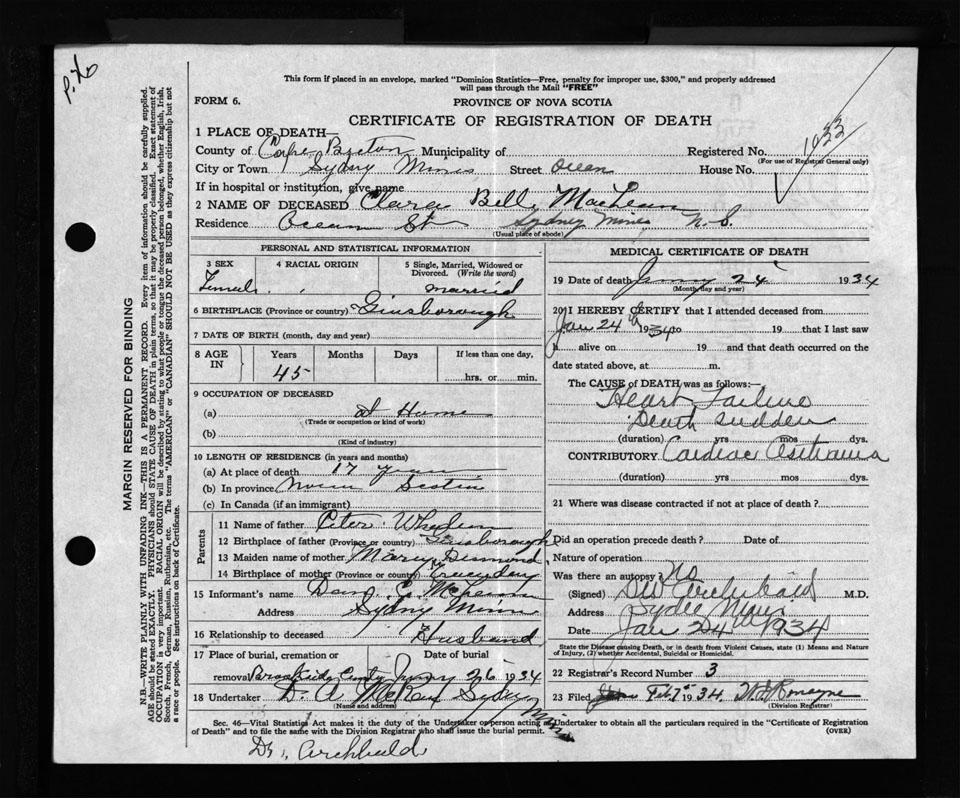 P.X.
This form if placed in an envelope, marked "Dominion Statistics—Free, penalty for improper use, $300," and properly addressed
will pass through the Mail "FREE"
FORM 6.
PROVINCE OF NOVA SCOTIA
CERTIFICATE OF REGISTRATION OF DEATH
1 PLACE OF DEATH—
County of Cape Breton Municipality of Registered No. 1033
(For use of Registrar General only)
City or Town Sydney Mines Street Ocean House No.
If in hospital or institution, give name
2 NAME OF DECEASED Clara Bell MacLean
Residence Ocean St Sydney Mines N.S.
(Usual place of abode)
PERSONAL AND STATISTICAL INFORMATION
3 SEX 4 RACIAL ORIGIN 5 Single, Married, Widowed or
Divorced. (Write the word)
Female married
6 BIRTHPLACE (Province or country) Guisborough
7 DATE OF BIRTH (month, day and year)
8 AGE IN Years Months Days If less than one day,
45 hrs. or min.
9 OCCUPATION OF DECEASED
(a) at Home
(Trade or occupation or kind of work)
(b)
(Kind of industry)
10 LENGTH OF RESIDENCE (in years and months)
(a) At place of death 17 years
(b) In province Nova Scotia
(c) In Canada (if an immigrant)
Parents
11 Name of father Peter
12 Birthplace of father (Province or country) Guisborough
13 Maiden name of mother Mary
14 Birthplace of mother (Province or country)
15 Informant's name Dan
Address Sydney Mines
16 Relationship to deceased Husband
17 Place of burial, cremation or Date of burial
removal County 26 1934
18 Undertaker D. A. McRay Sydney Mines
(Name and address)
MEDICAL CERTIFICATE OF DEATH
19 Date of death 24 1934
(Month, day and year)
20 I HEREBY CERTIFY that I attended deceased from
Jan 24 1934 to 19 that I last saw
h alive on 19 and that death occurred on the
date stated above, at m.
The CAUSE of DEATH was as follows:—
Heart Failure
Death sudden
(duration) yrs mos dys.
CONTRIBUTORY Cardiac Asthma
(duration) yrs mos dys.
21 Where was disease contracted if not at place of death?
Did an operation precede death? Date of
Nature of operation
Was there an autopsy? No
(Signed) Archibald M.D.
Address Sydney Mines
Date Jan 24th 1934
State the Disease causing Death, or in death from Violent Causes, state (1) Means and Nature
of Injury, (2) whether Accidental, Suicidal or Homicidal.
22 Registrar's Record Number 3
23 Filed Feb 7 1934
(Division Registrar)
Sec. 46—Vital Statistics Act makes it the duty of the Undertaker or person acting as Undertaker to obtain all the particulars required in the "Certificate of Registration
of Death" and to file the same with the Division Registrar who shall issue the burial permit. (OVER)
Dr. Archibald
MARGIN RESERVED FOR BINDING
N.B.—WRITE PLAINLY WITH UNFADING INK—THIS IS A PERMANENT RECORD. Every item of information should be carefully supplied.
AGE should be stated EXACTLY. PHYSICIANS should STATE CAUSE OF DEATH in plain terms, so that it may be properly classified. Exact statement of
OCCUPATION is very important. RACIAL ORIGIN will be described by stating to what people or tongue the deceased person belonged, whether English, Irish,
Scotch, French, German, Russian, Ruthenian, etc. The terms "AMERICAN" or "CANADIAN" SHOULD NOT BE USED as they express citizenship but not
a race or people. See instructions on back of Certificate.